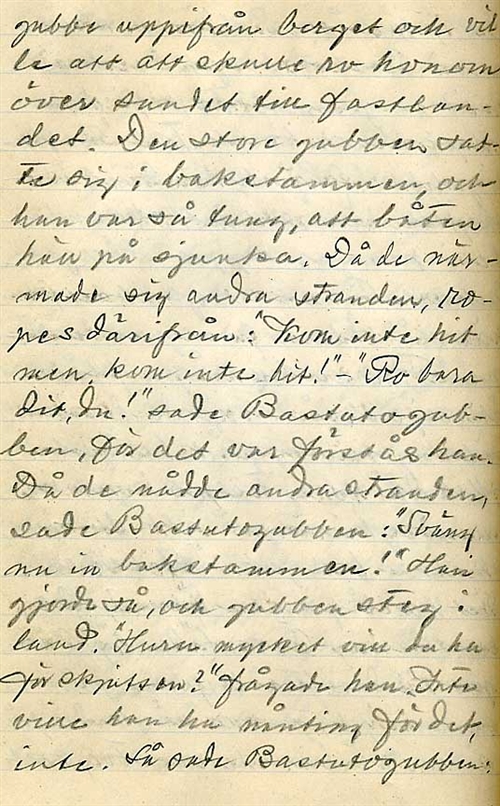 gubbe uppifrån berget och vil-
le att att skulle ro honom
över sundet till fastlan-
det. Den store gubben sat-
te sig i bakstammen, och
han var så tung, att båten
höll på sjunka. Då de när-
made sig andra stranden, ro-
pes därifrån: "Kom inte hit
men, kom inte hit!" – "Ro bara
dit, du!" sade Bastutogub-
ben, för det var förstås han.
Då de nådde andra stranden,
sade Bastutogubben: "Sväng
nu in bakstammen!" Han
gjorde så, och gubben steg i
land. "Huru mycket vill du ha
för skjutsen?" frågade han. Inte
ville han ha nånting för det,
inte. Så sade Bastutogubben: